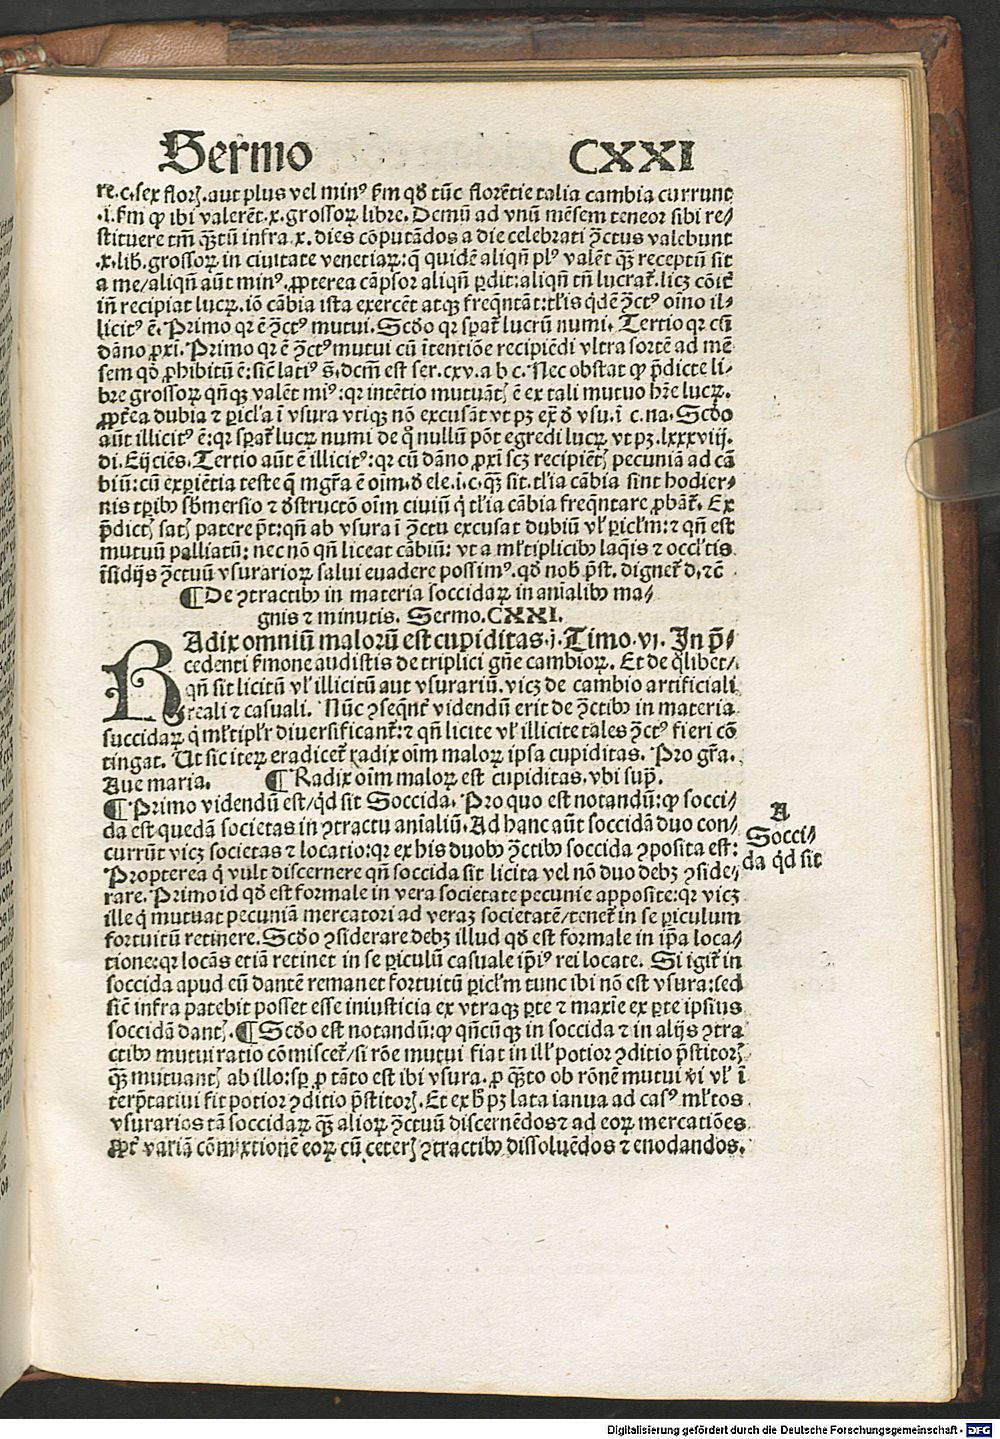 Sermo CXXI
re.c.sex floꝝ.aut plus vel minꝰ ẜm qđ tūc florētie talia cambia currunt
.i.ẜm ꝙ ibi valerēt.x.grossoꝝ libre. Demū ad vnū mēsem teneor sibi re/
stituere tm̄ qꝫtū infra.x.dies cōputādos a die celebrati ꝯctus valebunt
.x.lib.grossoꝝ in ciuitate venetiaꝝ:q̄ quidē aliqn̄ plꝰ valēt qꝫ receptū sit
a me/aliqn̄ aūt minꝰ.ꝓpterea cāpsor aliqn̄ ꝑdit:aliqn̄ tn̄ lucrat̄.licꝫ cōit̄
in̄ recipiat lucꝝ.iō cābia ista exercēt atqꝫ freq̄ntāt:tl̓is qͥdē ꝯctꝰ oīno il-
licitꝰ ē. Primo qꝛ ē ꝯctꝰ mutui. Scđo qꝛ sꝑat̄ lucrū numi. Tertio qꝛ cū
dāno ꝓxi. Primo qꝛ ē ꝯctꝰ mutui cū ītentiōe recipiēdi vltra sortē ad mē
sem qđ ꝓhibitū ē:sic̄ latiꝰ s̄.dcm̄ est ser.cxv.a b c. Nec obstat ꝙ p̄dicte li-
bre grossoꝝ qn̄qꝫ valēt miꝰ:qꝛ intētio mutuātꝭ ē ex tali mutuo hr̄e lucꝝ.
ꝓpt̄ea dubia ⁊ ꝑicl̓a ī vsura vtiqꝫ nō excusāt vt pꝫ ex̄ đ vsu.ī c.na. Scđo
aūt illicitꝰ ē:qꝛ sꝑat̄ lucꝝ numi de qͦ nullū pōt egredi lucꝝ vt pꝫ.lxxxviij.
di. Eijciēs. Tertio aūt ē illicitꝰ:qꝛ cū dāno ꝓxi scꝫ recipiētꝭ pecuniā ad cā
biū:cū exꝑiētia teste q̄ mgr̄a ē oīm.đ ele.i.c.qꝫ sit.tl̓ia cābia sint hodier-
nis tꝑibꝰ sb̄mersio ⁊ đstructō oīm ciuiū qͥ tl̓ia cābia freq̄ntare ꝓbāt̄. Ex
p̄dictꝭ satꝭ patere pt̄:qn̄ ab vsura ī ꝯctu excusat dubiū vl̓ ꝑicl̓m:⁊ qn̄ est
mutuū palliatū: nec nō qn̄ liceat cābiū: vt a ml̓tiplicibꝰ laq̄is ⁊ occl̓tis
īsidijs ꝯctuū vsurarioꝝ salui euadere possimꝰ.qđ nob̄ p̄st. dignet̄ đ,⁊c̄
¶ De ꝯtractibꝰ in materia soccidaꝝ in aīalibꝰ ma/
gnis ⁊ minutis. Sermo.CXXI.
RAdix omniū maloꝝ est cupiditas.j.Timo.vj. In p̄-
cedenti ẜmone audistis de triplici gn̄e cambioꝝ. Et de q̄libet/
qn̄ sit licitū vl̓ illicitū aut vsurariū.vicꝫ de cambio artificiali
reali ⁊ casuali. Nūc ꝯseqn̄t̄ videndū erit de ꝯctibꝰ in materia
succidaꝝ q̄ ml̓tipl̓r diuersificant̄:⁊ qn̄ licite vl̓ illicite tales ꝯctꝰ fieri cō
tingat. Ut sic iteꝝ eradicet̄ radix oīm maloꝝ ipsa cupiditas. Pro gr̄a.
Aue maria. ¶ Radix oīm maloꝝ est cupiditas.vbi sup̄.
¶ Primo videndū est/qđ sit Soccida. Pro quo est notandū:ꝙ socci/
da est quedā societas in ꝯtractu aīaliū. Ad hanc aūt soccidā duo con/
currūt vicꝫ societas ⁊ locatio:qꝛ ex his duobꝰ ꝯctibꝰ soccida ꝯposita est:
Propterea qͥ vult discernere qn̄ soccida sit licita vel nō duo debꝫ ꝯside/
rare. Primo id qđ est formale in vera societate pecunie apposite:qꝛ vicꝫ
ille qͥ mutuat pecuniā mercatori ad veraꝫ societatē/tenet̄ in se ꝑiculum
fortuitū retinere. Scđo ꝯsiderare debꝫ illud qđ est formale in ip̄a loca/
tione:qꝛ locās etiā retinet in se ꝑiculū casuale ip̄iꝰ rei locate. Si igit̄ in
soccida apud eū dantē remanet fortuitū ꝑicl̓m tunc ibi nō est vsura:sed
sic̄ infra patebit posset esse iniusticia ex vtraqꝫ ꝑte ⁊ maxīe ex ꝑte ipsius
soccidā dantꝭ. ¶ Scđo est notandū:ꝙ qn̄cūqꝫ in soccida ⁊ in alijs ꝯtra
ctibꝰ mutui ratio cōmiscet̄/si rōe mutui fiat in ill̓ potior ꝯditio p̄stitorꝭ
qꝫ mutuantꝭ ab illo:sꝑ ꝓ tāto est ibi vsura.ꝓ qꝫto ob rōnē mutui v̄i vl̓ ī
terp̄tatiui fit potior ꝯditio p̄stitorꝭ. Et ex h̄ pꝫ lata ianua ad casꝰ ml̓tos
vsurarios tā soccidaꝝ qꝫ alioꝝ ꝯctuū discernēdos ⁊ ad eoꝝ mercatiōes
ꝓpt̄ variā cōmixtionē eoꝝ cū ceterꝭ ꝯtractibꝰ dissoluēdos ⁊ enodandos.
A
Socci/
da qđ sit
Digitalisierung gefördert durch die Deutsche Forschungsgemeinschaft - DFG